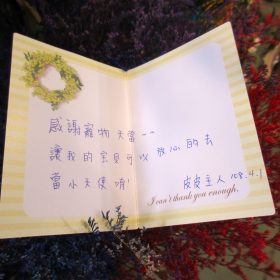 感謝寵物天堂~~
讓我的宝貝可以放心的去
當小天使唷!
皮皮主人 108.4.1
I can't thank you enough.